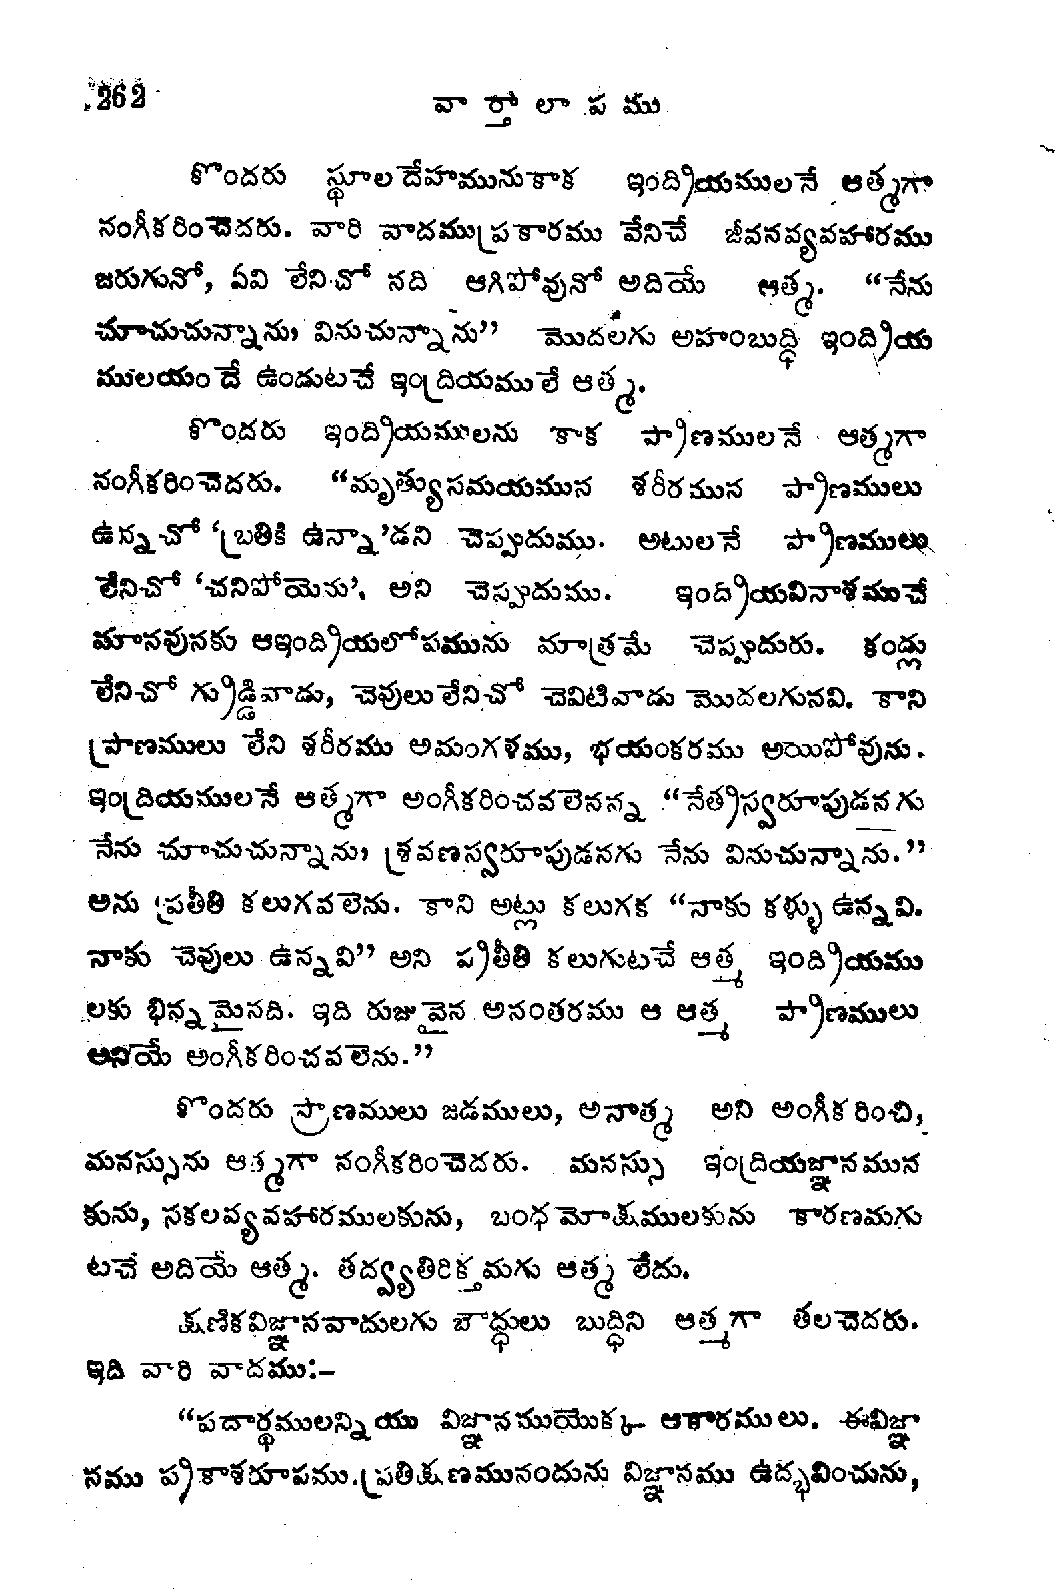 262
వార్తాలాపము
కొందరు స్థూలదేహమునుకాక ఇంద్రియములనే ఆత్మగా
నంగీకరించెదరు. వారి వాదముప్రకారము వేనిచే జీవనవ్యవహారము
జరుగునో, ఏవి లేనిచో నది ఆగిపోవునో అదియే ఆత్మ. “నేను
చూచుచున్నాను, వినుచున్నాను” మొదలగు అహంబుద్ధి ఇంద్రియ
ములయందే ఉండుటచే ఇంద్రియములే ఆత్మ.
కొందరు ఇంద్రియములను కాక ప్రాణములనే ఆత్మగా
నంగీకరించెదరు. “మృత్యుసమయమున శరీరమున ప్రాణములు
ఉన్నచో ‘బ్రతికి ఉన్నా’డని చెప్పుదుము. అటులనే ప్రాణములు
లేనిచో ‘చనిపోయెను’, అని చెప్పుదుము. ఇంద్రియవినాశముచే
మానవునకు ఆఇంద్రియలోపమును మాత్రమే చెప్పుదురు. కండ్లు
లేనిచో గ్రుడ్డివాడు, చెవులులేనిచో చెవిటివాడు మొదలగునవి. కాని
ప్రాణములు లేని శరీరము అమంగళము, భయంకరము అయిపోవును.
ఇంద్రియములనే ఆత్మగా అంగీకరించవలెనన్న “నేత్రస్వరూపుడనగు
నేను చూచుచున్నాను, శ్రవణస్వరూపుడనగు నేను వినుచున్నాను.”
అను ప్రతీతి కలుగవలెను. కాని అట్లు కలుగక “నాకు కళ్ళు ఉన్నవి.
నాకు చెవులు ఉన్నవి” అని ప్రతీతి కలుగుటచే ఆత్మ ఇంద్రియము
లకు భిన్నమైనది. ఇది రుజువైన అనంతరము ఆ ఆత్మ ప్రాణములు
అనియే అంగీకరించవలెను.”
కొందరు ప్రాణములు జడములు, అనాత్మ అని అంగీకరించి,
మనస్సును ఆత్మగా నంగీకరించెదరు. మనస్సు ఇంద్రియజ్ఞానమున
కును, సకలవ్యవహారములకును, బంధమోక్షములకును కారణమగు
టచే అదియే ఆత్మ. తద్వ్యతిరిక్తమగు ఆత్మ లేదు.
క్షణికవిజ్ఞానవాదులగు బౌద్ధులు బుద్ధిని ఆత్మగా తలచెదరు.
ఇది వారి వాదము:–
“పదార్థములన్నియు విజ్ఞానముయొక్క ఆకారములు. ఈవిజ్ఞా
నము ప్రకాశరూపము. ప్రతిక్షణమునందును విజ్ఞానము ఉద్భవించును,